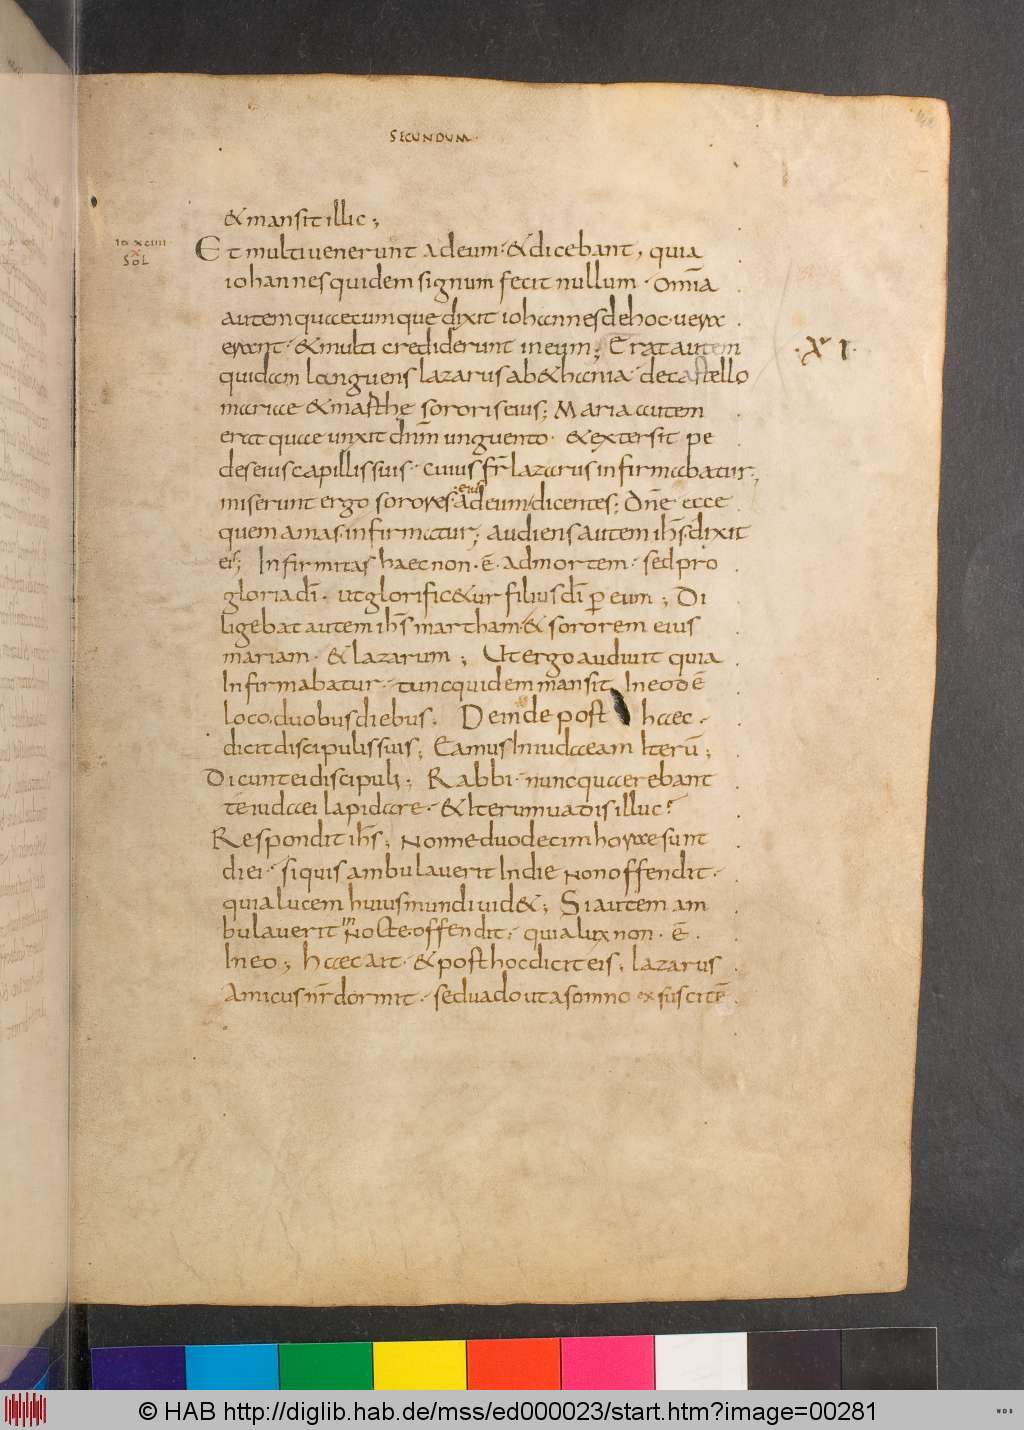 SECUNDUM·
& mansit illic;
io xciiii
x
SOL
Et multi uenerunt ad eum· & dicebant, quia
iohannes quidem signum fecit nullum· Omīa
autem quaecumque dixit iohannes de hoc· uera
erant· & multi crediderunt in eum; Erat autem
·XI·
quidam languens lazarus ab&hania· de castello
mariae & marthe sororis eius; Maria autem
erat quae unxit dnm̄ unguento· & extersit pe
des eius capillis suis· cuius fr̄ lazarus infirmabatur;
miserunt ergo sorores eius ad eum dicentes; Dn̄e ecce
quem amas infirmatur; audiens autem ihs̄ dixit
eis; Infirmitas haec non· ē· ad mortem· sed pro
gloria dī· ut glorific&ur filius dī p eum; Di
ligebat autem ihs̄ martham & sororem eius
mariam· & lazarum; Ut ergo audiuit quia
Infirmabatur· tunc quidem mansit In eodē
loco duobus diebus; Deinde post haec·
dicit discipulis suis; Eamus In iudaeam Iterū;
Dicunt ei discipuli; Rabbi· nunc quaerebant
te iudaei lapidare· & Iterum uadis illuc?
Respondit ihs̄; Nonne duodecim horae sunt
diei· si quis ambulauerit In die Non offendit·
quia lucem huius mundi uid&; Si autem am
bulauerit in Nocte offendit; quia lux non· ē·
In eo; haec ait· & post hoc dicit eis; lazarus
Amicus nr̄ dormit· sed uado ut a somno exsuscitē
© HAB http://diglib.hab.de/mss/ed000023/start.htm?image=00281